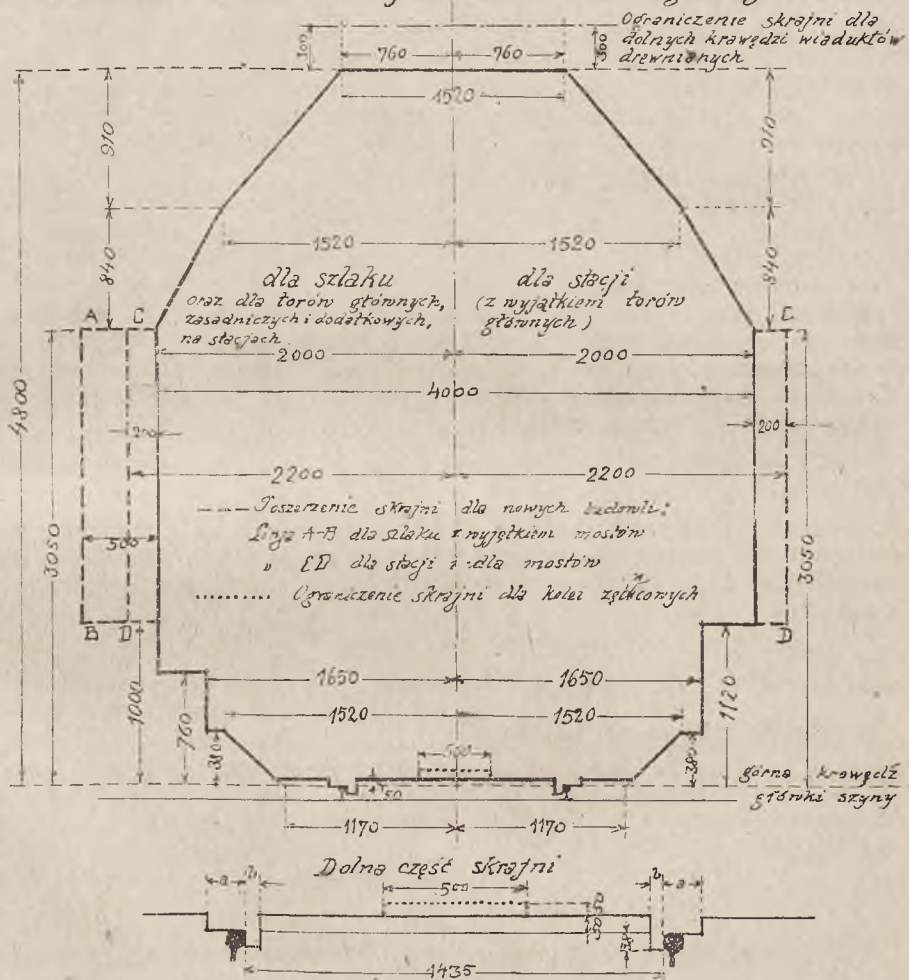 Ograniczenie skrajni dla
dolnych krawędzi wiaduktów
drewnianych
300
760
760
300
1520
910
910
1520
1520
840
840
dla szlaku
oraz dla torów głównych,
zasadniczych i dodatkowych,
na stacjach
dla stacji
(z wyjątkiem torów
głównych)
A C
2000
2000
4800
4000
200
200
2200
2200
skrajni dla nowych
Linja A-B dla szlaku z wyjątkiem mostów
dla stacji i dla mostów
Ograniczenie skrajni dla kolei
3050
500
3050
B D
D
1650
1650
1000
760
1120
1520
1520
380
500
380
50
górna krawędź
główki szyny
1170
1170
Dolna część skrajni
a b
500
b a
50
50
38
1435